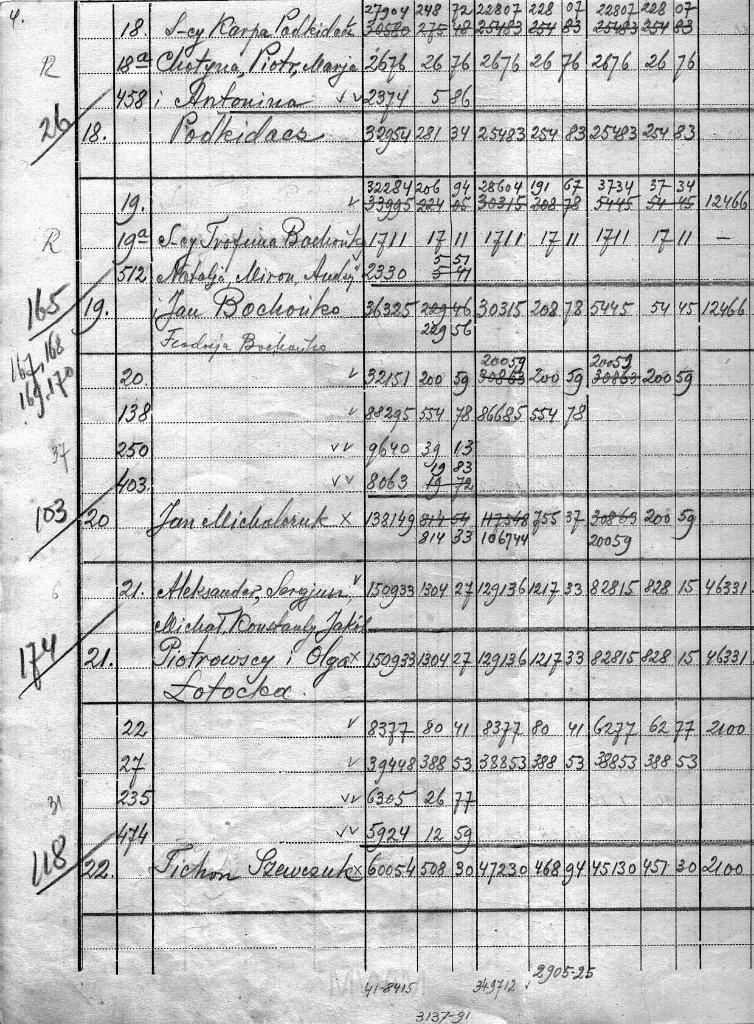 4.
27904 248 72 22807 228 07 22807 228 07
18. S-cy Karpa Podkidacz 30580 275 48 25483 254 83 25483 254 83
R 18a Chotyna, Piotr, Marja 2676 26 76 2676 26 76 2676 26 76
458 i Antonina √ √ 2374 5 86
26 18. Podkidacs 32954 281 34 25483 254 83 25483 254 83
32284 206 94 28604 191 67 3734 37 34
19. √ 33995 224 05 30315 208 78 5445 54 45 12466
R 19a S-cy Trofima Bochońk 1711 17 11 1711 17 11 1711 17 11 —
5 51
512 Natalja, Miron, Andrej √ 2330 5 41
165 19. i Jan Bochońko 36325 229 46 30315 208 78 5445 54 45 12466
Feodosja Bochońko 229 56
167, 168 20059 20059
169, 170 20. √ 32151 200 59 30863 200 59 30863 200 59
138 √ 88295 554 78 86685 554 78
37 250 √√ 9640 39 13
19 83
403 √√ 8063 19 72
103 20 Jan Michalczuk x 138149 814 54 117548 755 37 30863 200 59
814 33 106744 20059
6 21. Aleksander, Sergjusz, √ 150933 1304 27 129136 1217 33 82815 828 15 46331
Michał, Konstanty, Jakób
174 21. Piotrowscy i Olga x 150933 1304 27 129136 1217 33 82815 828 15 46331
Łotocka.
22 √ 8377 80 41 8377 80 41 6277 62 77 2100
27 √ 39448 388 53 38853 388 53 38853 388 53
31 235 √√ 6305 26 77
474 √√ 5924 12 59
118 22. Tichon Szewczuk x 60054 508 30 47230 468 94 45130 451 30 2100
41-8415 349712 √ 2905-25
3137-91